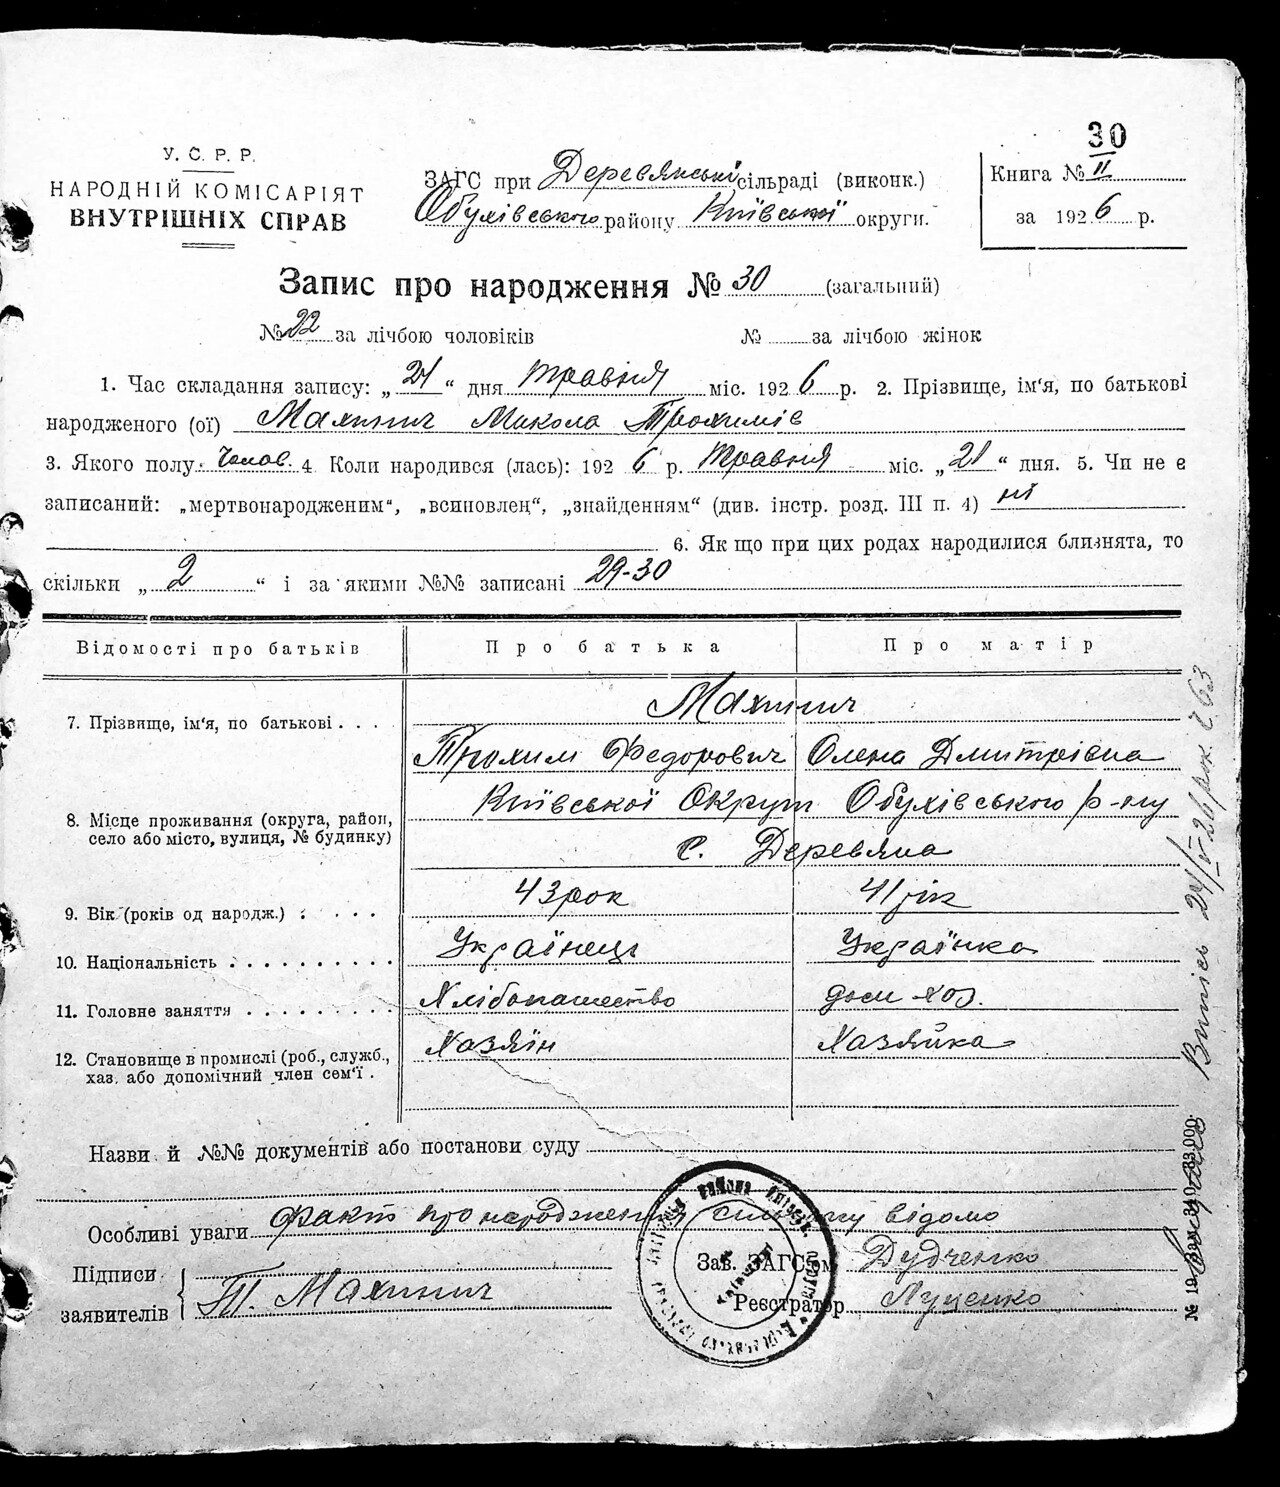 30
У. С. Р. Р.
НАРОДНІЙ КОМІСАРІЯТ
ВНУТРІШНІХ СПРАВ
ЗАГС при Деревянській сільраді (виконк.)
Обухівського району Київської округи.
Книга № II
за 1926 р.
Запис про народження № 30 (загальний)
№ 22 за лічбою чоловіків № за лічбою жінок
1. Час складання запису: „21“ дня травня міс. 1926 р. 2. Прізвище, ім'я, по батькові
народженого (ої) Махинич Микола Трохимів
3. Якого полу чолов. 4 Коли народився (лась): 1926 р. травня міс. „21“ дня. 5. Чи не є
записаний: „мертвонародженим“, „всиновлен“, „знайденням“ (див. інстр. розд. III п. 4) ні
6. Як що при цих родах народилися близнята, то
скільки „2“ і за якими №№ записані 29-30
Відомості про батьків Про батька Про матір
7. Прізвище, ім'я, по батькові . . . Махинич
Трохим Федорович Олена Дмитрівна
8. Місце проживання (округа, район, село або місто, вулиця, № будинку) Київської Округи Обухівського р-ну
с. Деревяна
9. Вік (років од народж.) . . . . . 43 рок 41 рік
10. Національність . . . . . . . . . . Українець Українка
11. Головне заняття . . . . . . . . . Хлібопашество дом хоз.
12. Становище в промислі (роб., служб., хаз. або допомічний член сем'ї . Хазяїн Хазяйка
Назви й №№ документів або постанови суду
Особливі уваги факт про народження відомо
Підписи заявителів Т. Махинич
Зав. ЗАГС'ом Дудченко
Реєстратор Луценко
Випись 24/V 26 рок. № 63